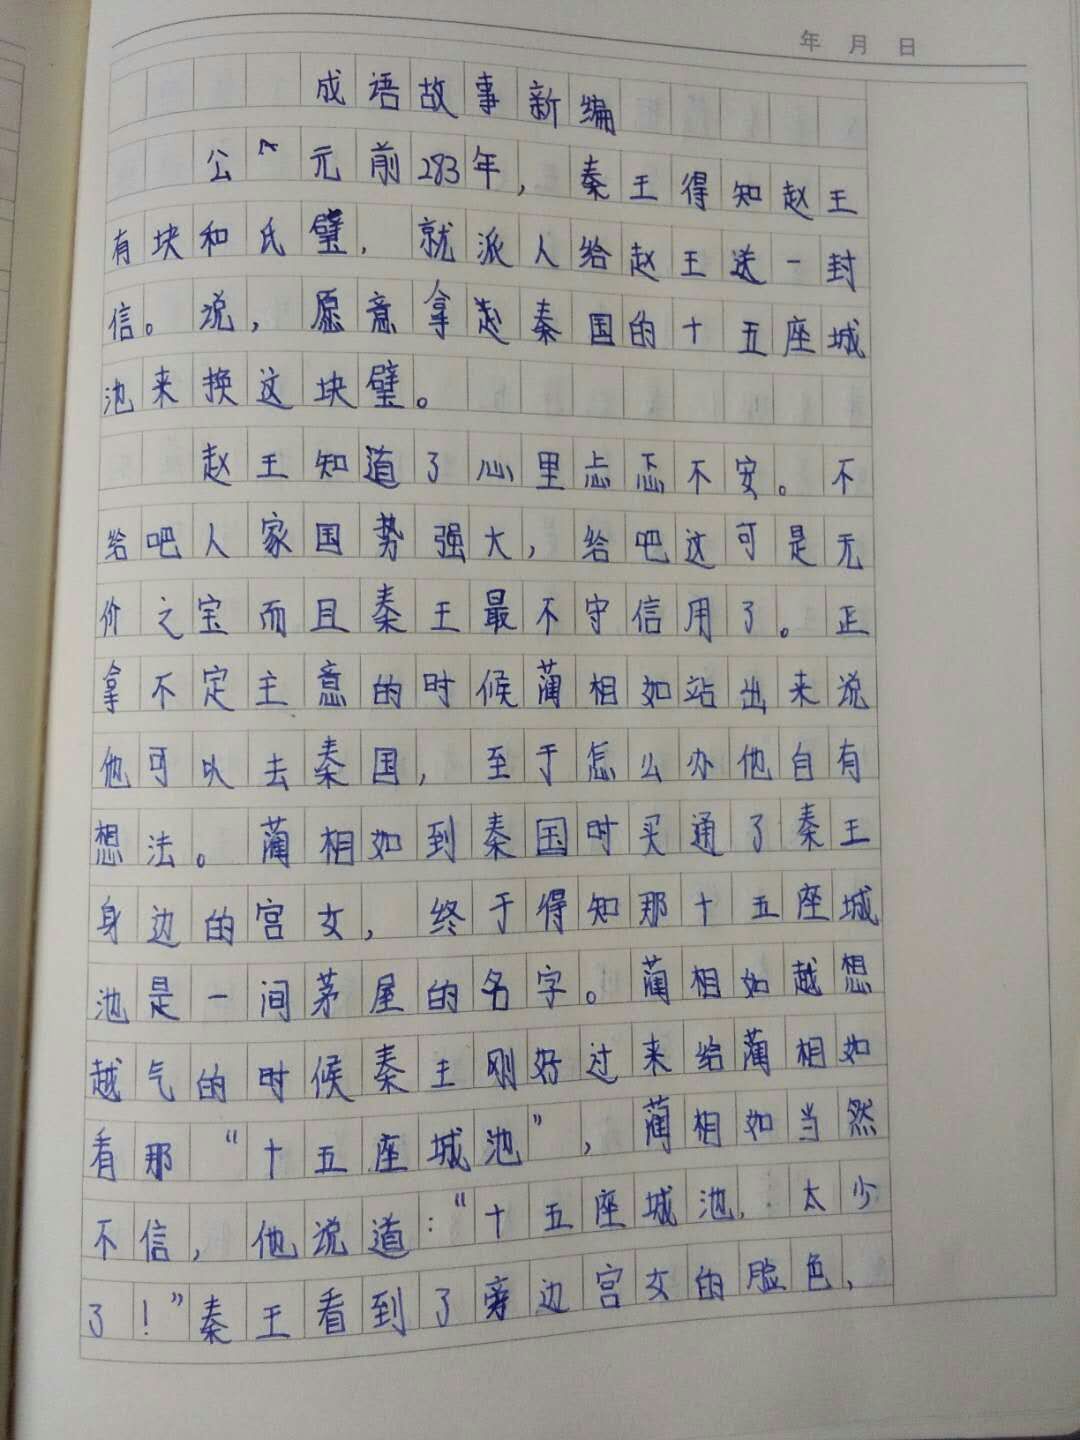 年 月 日
成语故事新编
公元前283年，秦王得知赵王
有块和氏璧，就派人给赵王送一封
信。说，愿意拿秦国的十五座城
池来换这块璧。
赵王知道了心里忐忑不安。不
给吧人家国势强大，给吧这可是无
价之宝而且秦王最不守信用了。正
拿不定主意的时候蔺相如站出来说
他可以去秦国，至于怎么办他自有
想法。蔺相如到秦国时买通了秦王
身边的宫女，终于得知那十五座城
池是一间茅屋的名字。蔺相如越想
越气的时候秦王刚好过来给蔺相如
看那“十五座城池”，蔺相如当然
不信，他说道：“十五座城池，太少
了！”秦王看到了旁边宫女的脸色，